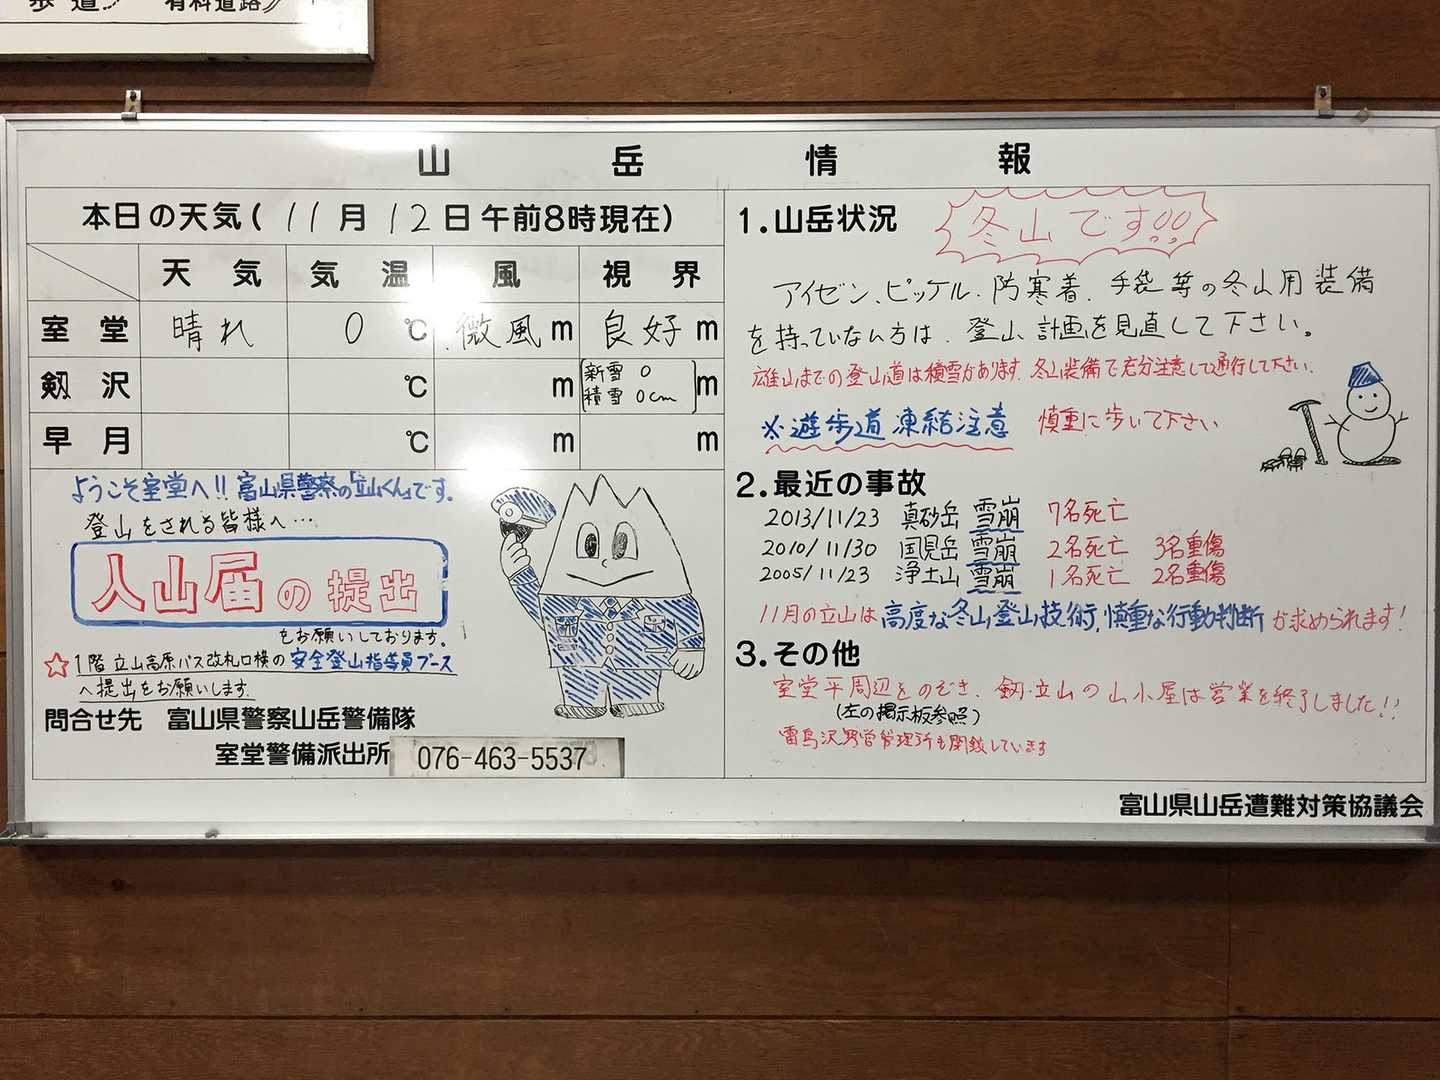 歩道
有料道路
山岳情報
本日の天気(11月12日午前8時現在)
天気 気温 風 視界
室堂 晴れ 0 ℃ 微風 m 良好 m
剱沢 ℃ m 新雪 0 m
積雪 0cm
早月 ℃ m m
ようこそ室堂へ!!富山県警察の「立山くん」です。
登山をされる皆様へ…
入山届の提出
をお願いしております。
☆1階 立山高原バス改札口横の安全登山指導員ブース
へ提出をお願いします。
問合せ先 富山県警察山岳警備隊
室堂警備派出所 076-463-5537
1.山岳状況 冬山です!!
アイゼン、ピッケル、防寒着、手袋等の冬山用装備
を持っていない方は、登山計画を見直して下さい。
雄山までの登山道は積雪があります。冬山装備で充分注意して通行して下さい。
※遊歩道凍結注意 慎重に歩いて下さい
2.最近の事故
2013/11/23 真砂岳 雪崩 7名死亡
2010/11/30 国見岳 雪崩 2名死亡 3名重傷
2005/11/23 浄土山 雪崩 1名死亡 2名重傷
11月の立山は高度な冬山登山技術、慎重な行動判断が求められます!
3.その他
室堂平周辺をのぞき、剱・立山の山小屋は営業を終了しました!!
(左の掲示板参照)
雷鳥沢野営管理所も閉鎖しています
富山県山岳遭難対策協議会